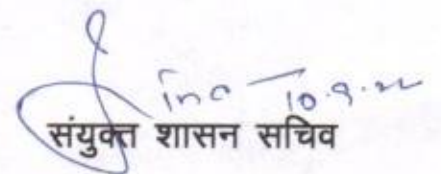 10.9.22
संयुक्त शासन सचिव